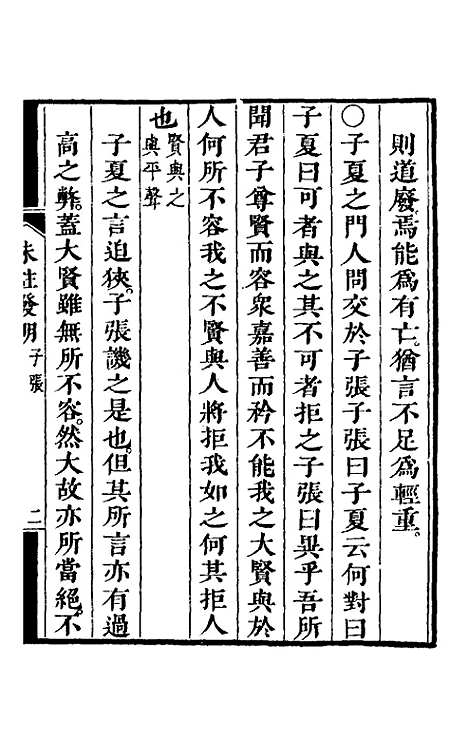 則道廢。焉能為有亡。猶言不足為輕重。
○子夏之門人問交於子張子張曰子夏云何對曰
子夏曰可者與之其不可者拒之子張曰異乎吾所
聞君子尊賢而容眾嘉善而矜不能我之大賢與於
人何所不容我之不賢與人將拒我如之何其拒人
也賢與之
與平聲
子夏之言迫狹。子張譏之是也。但其所言亦有過
高之弊。蓋大賢雖無所不容。然大故亦所當絕。不
朱註發明 子張 二